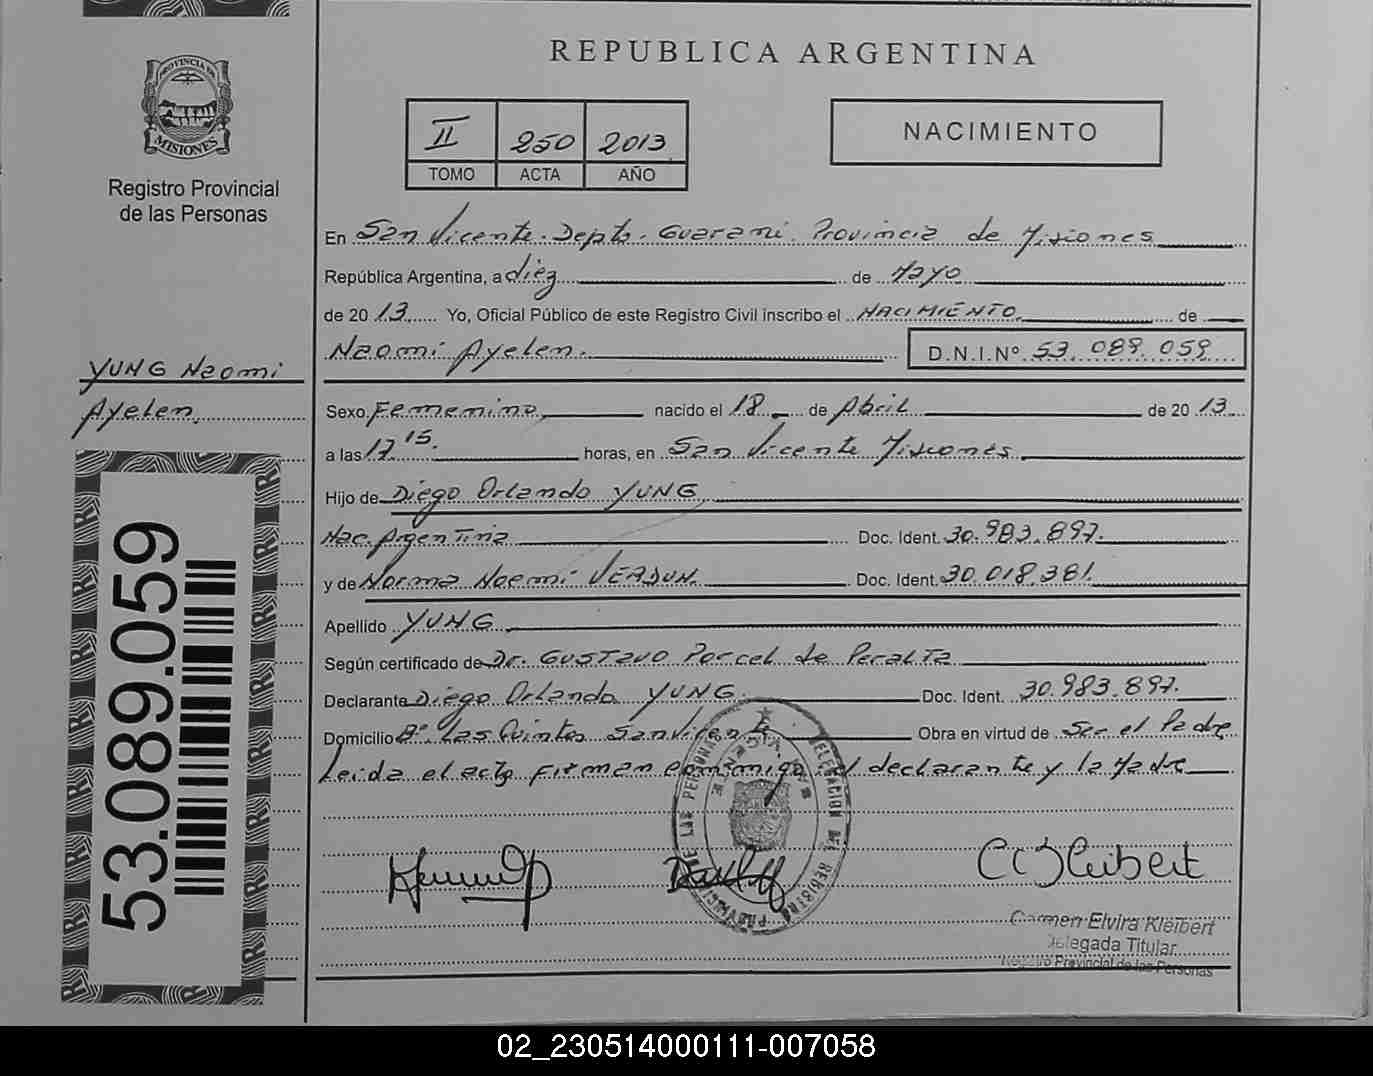 REPUBLICA ARGENTINA
PROVINCIA DE
MISIONES
Registro Provincial
de las Personas
II 250 2013
TOMO ACTA AÑO
NACIMIENTO
En San Vicente. Depto. Guarani. Provincia de Misiones
República Argentina, a diez de Mayo
de 2013 Yo, Oficial Público de este Registro Civil inscribo el NACIMIENTO de
Naomi Ayelen. D.N.I.Nº 53.089.059
YUNG Naomi
Ayelen.
Sexo Femenino nacido el 18 de Abril de 2013
a las 17 15. horas, en San Vicente Misiones
Hijo de Diego Orlando YUNG
Nac. Argentina Doc. Ident. 30.983.897.
y de Norma Noemi VERDUN. Doc. Ident. 30.018.381.
Apellido YUNG
Según certificado de Dr. GUSTAVO Porcel de Peralta
Declarante Diego Orlando YUNG. Doc. Ident. 30.983.897.
Domicilio Bº Las Quintas San Vicente Obra en virtud de Ser el Padre
Leida el acta firman conmigo el declarante y la Madre
53.089.059
DELEGACION DEL REGISTRO PROVINCIAL DE LAS PERSONAS
SAN VICENTE
Carmen Elvira Kleibert
Delegada Titular
Registro Provincial de las Personas
02_230514000111-007058